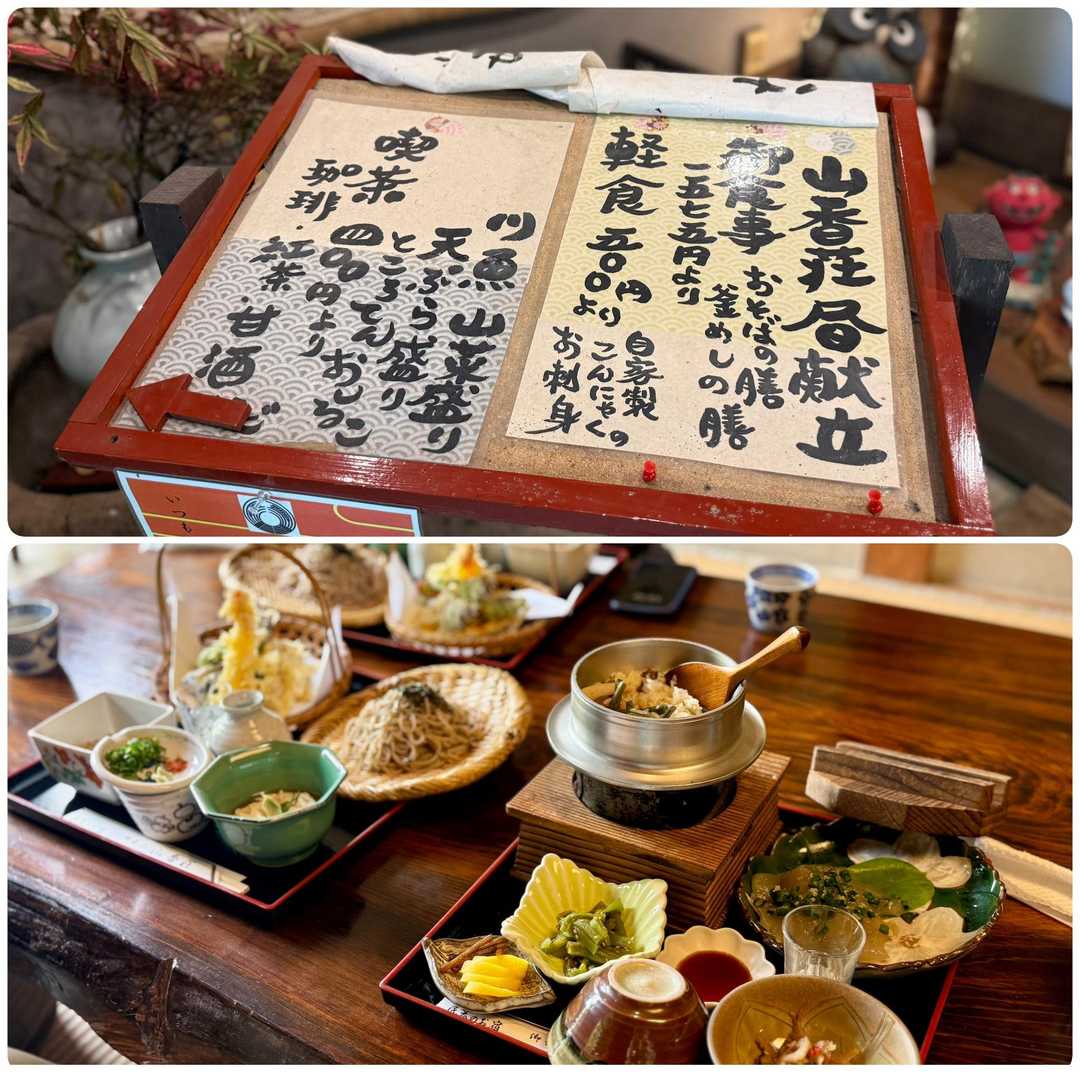 山香荘昼献立
御食事
一五七五円より
おそばの膳
釜めしの膳
軽食
五〇〇円より
自家製
こんにゃくの
お刺身
川魚
山菜盛り
天ぷら盛り
ところてん
おしるこ
喫茶
四〇〇円より
珈琲・紅茶・甘酒
いつも